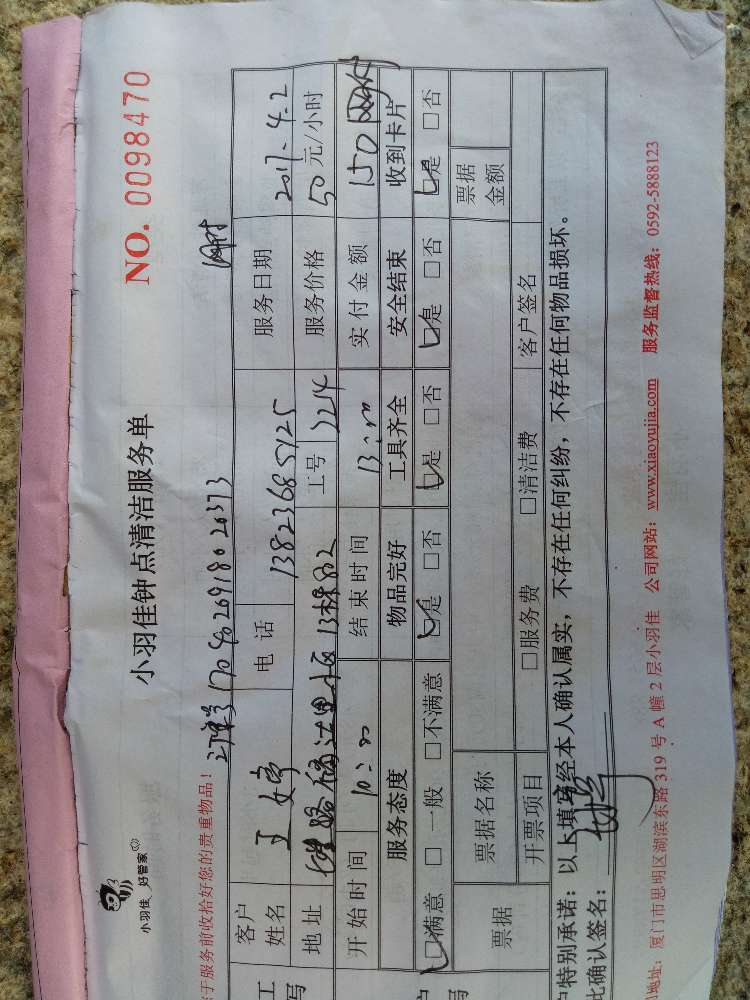 小羽佳 好管家
小羽佳钟点清洁服务单
NO. 0098470
于服务前收拾好您的贵重物品！
订单号1704026918020373
客户姓名
电话 13823685125
服务日期 2017.4.2
地址
工号 2214
服务价格 50元/小时
开始时间 10:00
结束时间 13:00
实付金额 150
服务态度
物品完好
工具齐全
安全结束
收到卡片
□满意 □一般 □不满意
□是 □否
□是 □否
□是 □否
□是 □否
票据
票据名称
票据金额
开票项目
□服务费
□清洁费
客户签名
户特别承诺：以上填写经本人确认属实，不存在任何纠纷，不存在任何物品损坏。
此确认签名：
地址：厦门市思明区湖滨东路 319 号 A 幢 2 层小羽佳 公司网站：www.xiaoyujia.com 服务监督热线：0592-5888123